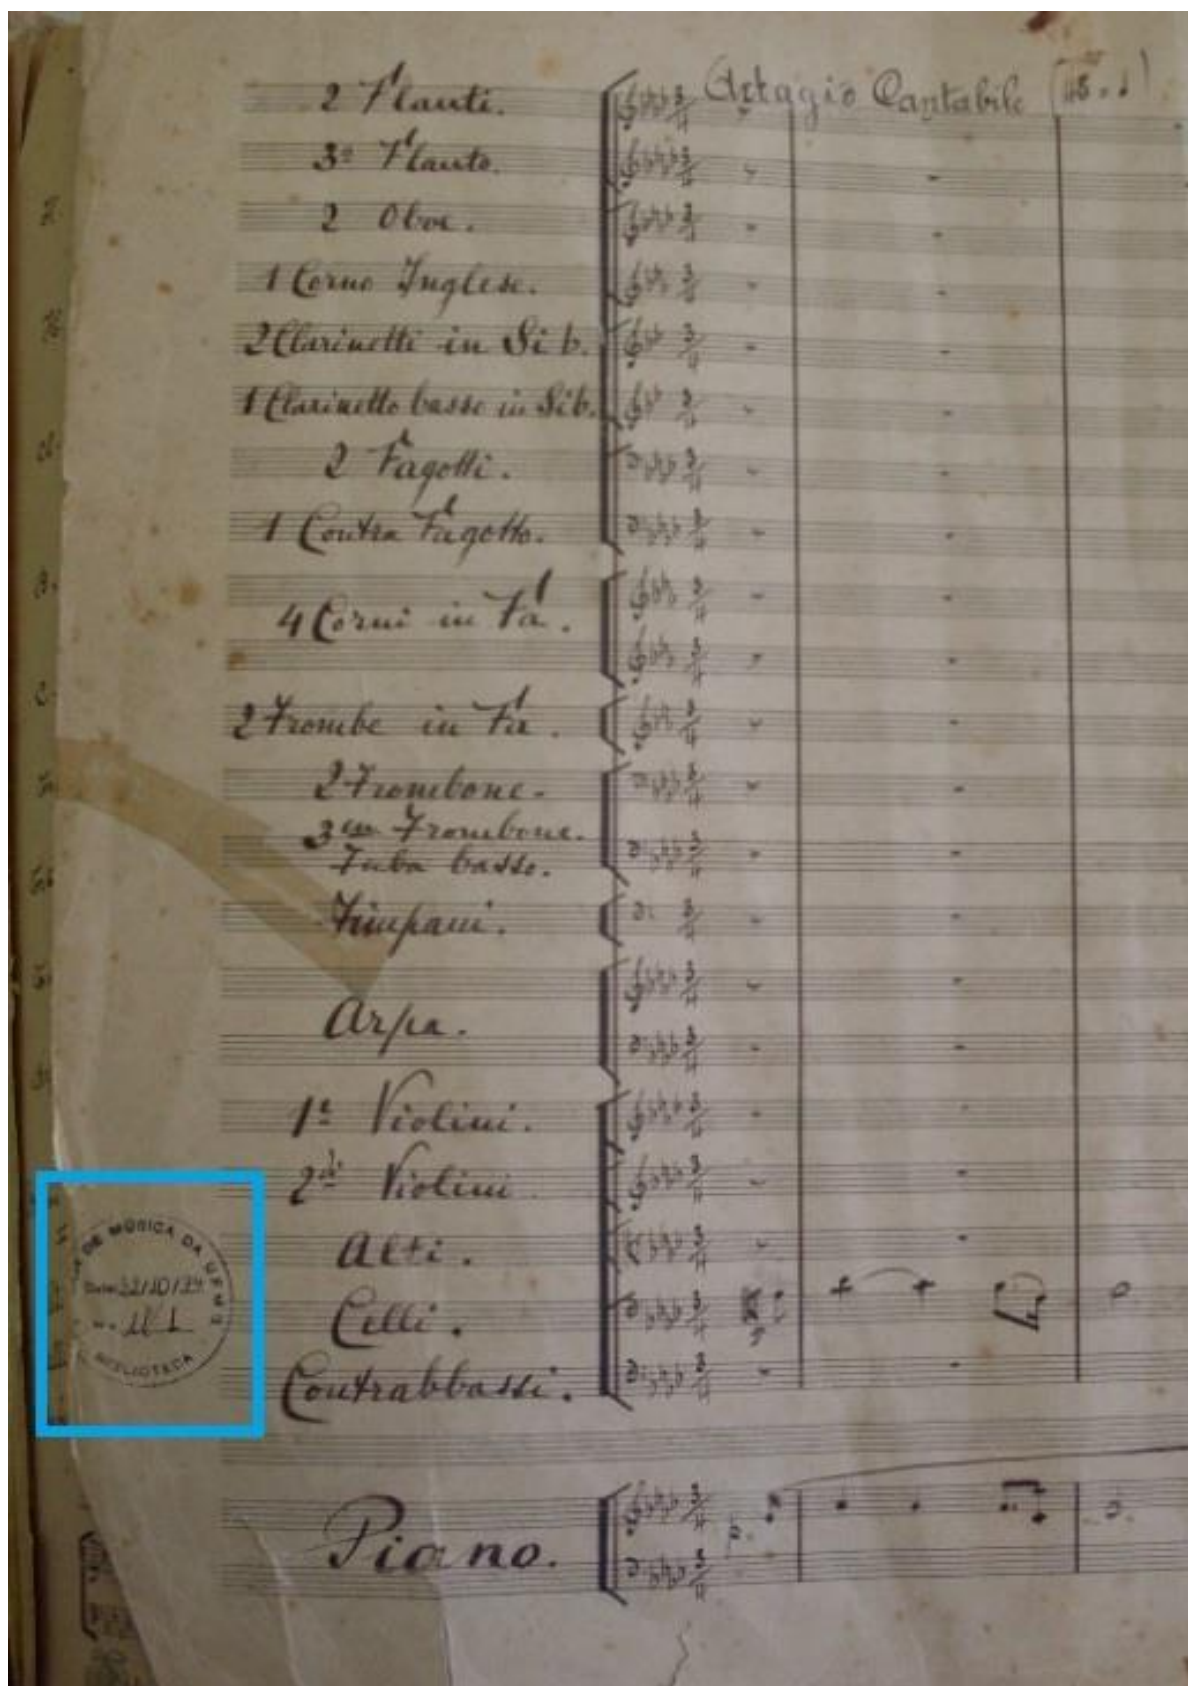 Adagio Cantabile
2 Flauti.
3º Flauto.
2 Oboe.
1 Corno Inglese.
2 Clarinetti in Si b.
1 Clarinetto basso in Sib.
2 Fagotti.
1 Contra Fagotto.
4 Corni in Fá.
2 Trombe in Fá.
2 Trombone.
3en Trombone.
Tuba basso.
Timpani.
Arpa.
1º Violini.
2di Violini
Alti.
Celli.
Contrabbassi.
Piano.
DE MÚSICA DA UFMG
BIBLIOTECA